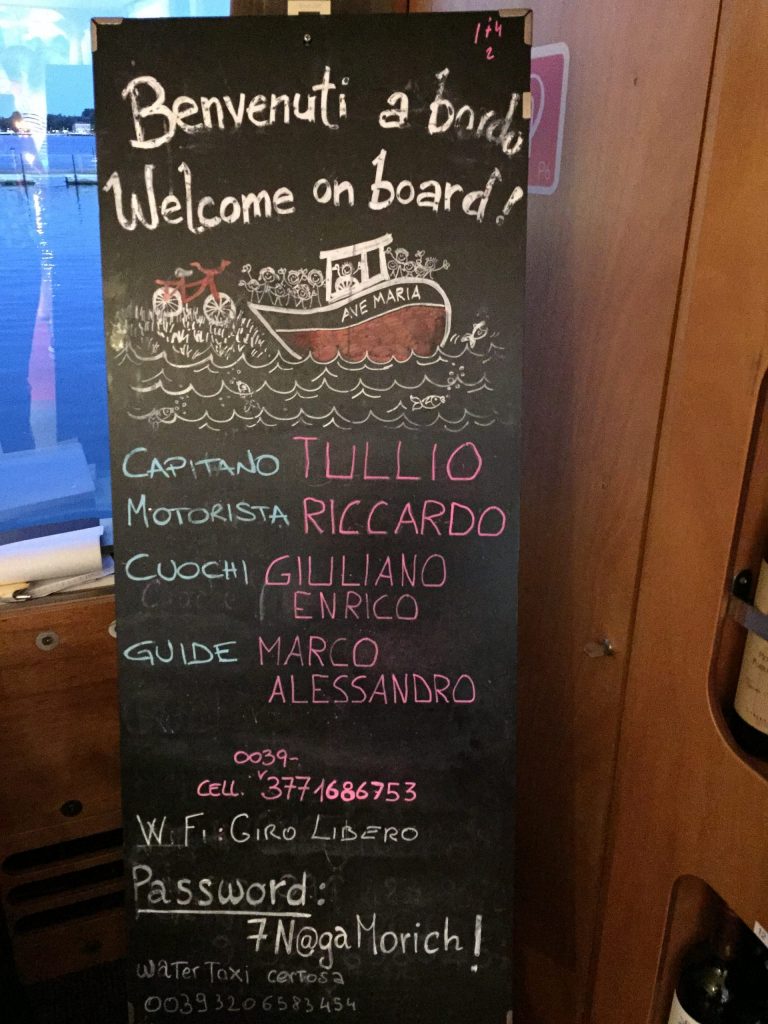 1+4
2
Benvenuti a bordo
Welcome on board!
AVE MARIA
CAPITANO TULLIO
MOTORISTA RICCARDO
CUOCHI GIULIANO
ENRICO
GUIDE MARCO
ALESSANDRO
0039-
CELL. 3771686753
Wi Fi: GIRO LIBERO
Password:
7N@gaMorich!
water Taxi certosa
00393206583454
Po